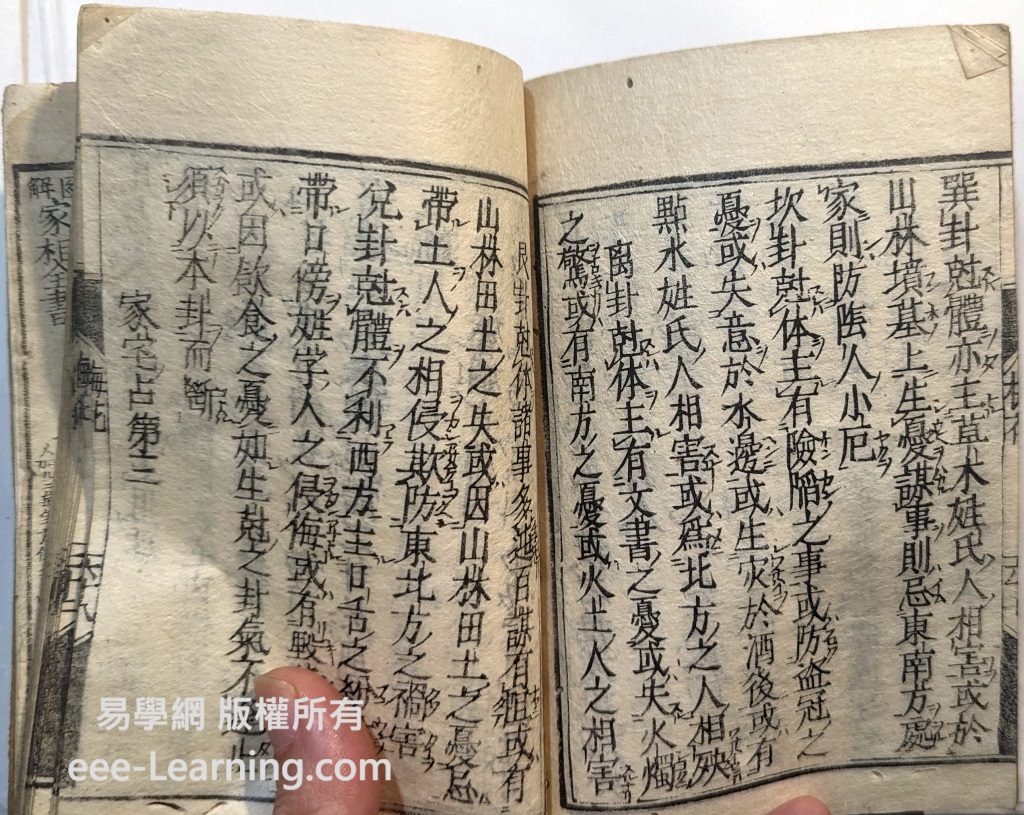 巽卦尅體亦主草木姓氏人相害或於
山林墳墓上生憂謀事則忌東南方處
家則防陰人小厄
坎卦尅体主有險陷之事或防盗冦之
憂或失意於水邊或生灾於酒後或有
點水姓氏人相害或爲北方之人相殃
离卦尅体主有文書之憂或失火燭
之驚或有南方之憂或火土人之相害
艮卦尅体諸事多 百謀有阻或有
山林田土之失或因山林田土之憂忌
帶土人之相侵欺防東北方之禍害
兌卦尅體不利西方主口舌之紛
帶口傍姓字人之侵侮或有毀
或因飮食之憂如生尅之卦氣不
須以本卦而斷
家宅占第三
図解
家相全書
梅花
易學網 版權所有
eee-Learning.com